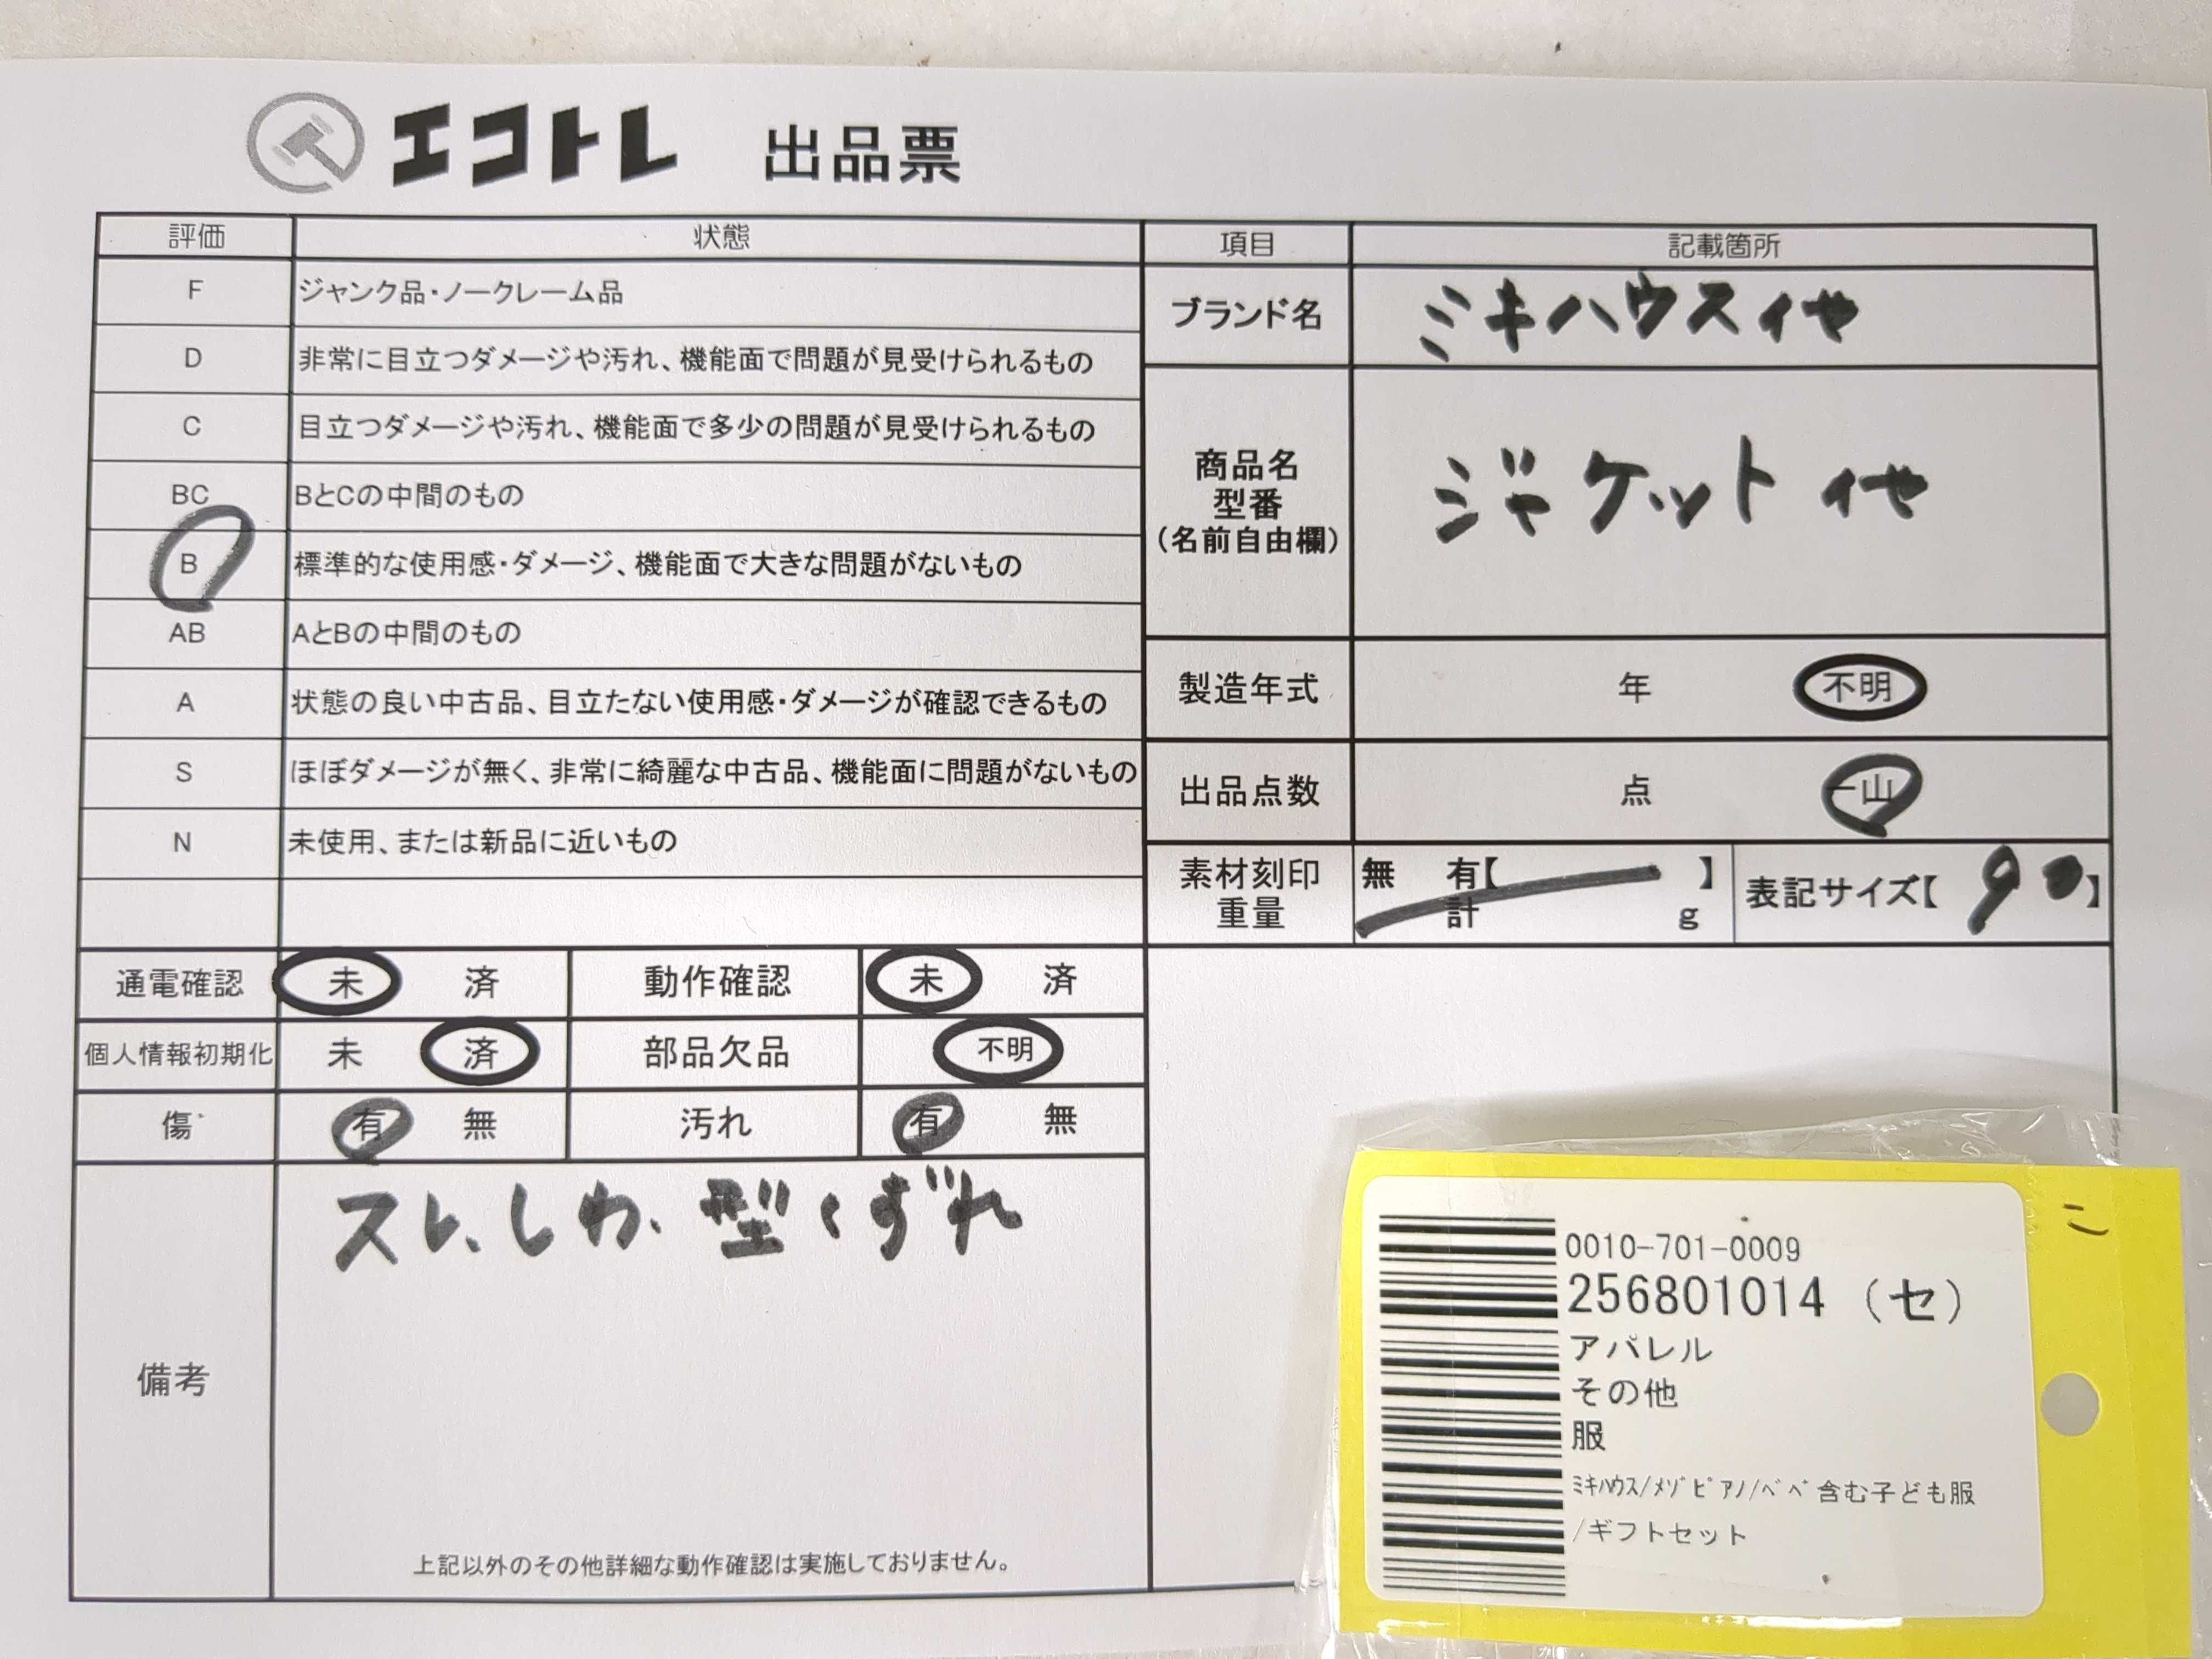 エコトレ 出品票
評価 状態
F ジャンク品・ノークレーム品
D 非常に目立つダメージや汚れ、機能面で問題が見受けられるもの
C 目立つダメージや汚れ、機能面で多少の問題が見受けられるもの
BC BとCの中間のもの
B 標準的な使用感・ダメージ、機能面で大きな問題がないもの
AB AとBの中間のもの
A 状態の良い中古品、目立たない使用感・ダメージが確認できるもの
S ほぼダメージが無く、非常に綺麗な中古品、機能面に問題がないもの
N 未使用、または新品に近いもの
項目 記載箇所
ブランド名 ミキハウス他
商品名
型番
(名前自由欄)
ジャケット他
製造年式 年 不明
出品点数 点 一山
素材刻印 無 有【 】
重量 計 g
表記サイズ【 90 】
通電確認 未 済 動作確認 未 済
個人情報初期化 未 済 部品欠品 不明
傷 有 無 汚れ 有 無
備考
スレ、しわ、型くずれ
上記以外のその他詳細な動作確認は実施しておりません。
0010-701-0009
256801014 (セ)
アパレル
その他
服
ﾐｷﾊｳｽ/ﾒｿﾞﾋﾟｱﾉ/ﾍﾞﾍﾞ含む子ども服
/ギフトセット